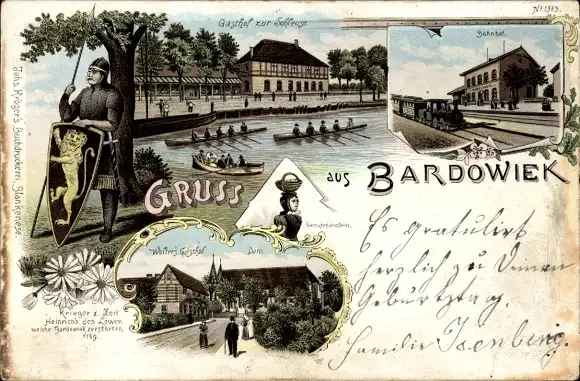 No. 1913.
Gasthof zur Schleuse
Bahnhof.
Joh. Kröger's Buchdruckerei, Blankenese.
GRUSS aus BARDOWIEK
Walter's Gasthof
Dom.
Krieger z. Zeit
Heinrich's des Löwen
welche Bardowiek zerstörten
1189.
Es gratuliert
herzlich zu Deinem
Geburtstag.
Familie Isenberg.